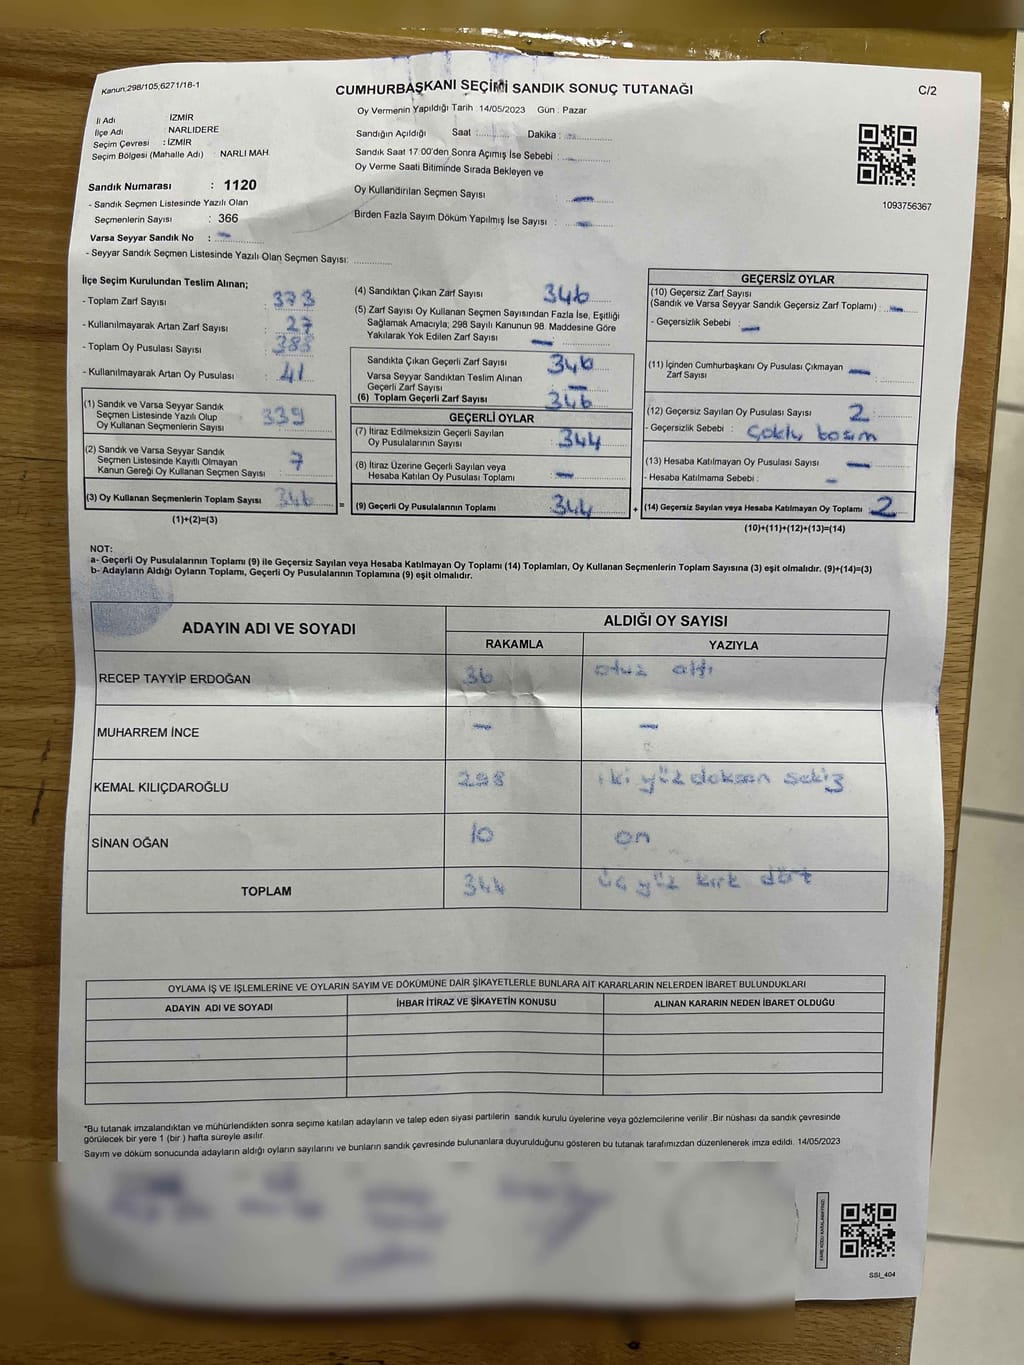 Kanun;298/105;6271/18-1
CUMHURBAŞKANI SEÇİMİ SANDIK SONUÇ TUTANAĞI
C/2
Oy Vermenin Yapıldığı Tarih 14/05/2023 Gün : Pazar
İl Adı : İZMİR
İlçe Adı : NARLIDERE
Seçim Çevresi : İZMİR
Seçim Bölgesi (Mahalle Adı) : NARLI MAH.
Sandığın Açıldığı Saat : Dakika : —
Sandık Saat 17:00'den Sonra Açımış İse Sebebi : —
Oy Verme Saati Bitiminde Sırada Bekleyen ve
Oy Kullandırılan Seçmen Sayısı : —
Birden Fazla Sayım Döküm Yapılmış İse Sayısı : —
1093756367
Sandık Numarası : 1120
- Sandık Seçmen Listesinde Yazılı Olan
Seçmenlerin Sayısı : 366
Varsa Seyyar Sandık No : —
- Seyyar Sandık Seçmen Listesinde Yazılı Olan Seçmen Sayısı:
İlçe Seçim Kurulundan Teslim Alınan;
- Toplam Zarf Sayısı : 373
- Kullanılmayarak Artan Zarf Sayısı : 27
- Toplam Oy Pusulası Sayısı : 385
- Kullanılmayarak Artan Oy Pusulası : 41
(1) Sandık ve Varsa Seyyar Sandık
Seçmen Listesinde Yazılı Olup
Oy Kullanan Seçmenlerin Sayısı : 339
(2) Sandık ve Varsa Seyyar Sandık
Seçmen Listesinde Kayıtlı Olmayan
Kanun Gereği Oy Kullanan Seçmen Sayısı : 7
(3) Oy Kullanan Seçmenlerin Toplam Sayısı : 346
(1)+(2)=(3)
(4) Sandıktan Çıkan Zarf Sayısı 346
(5) Zarf Sayısı Oy Kullanan Seçmen Sayısından Fazla İse, Eşitliği
Sağlamak Amacıyla; 298 Sayılı Kanunun 98. Maddesine Göre
Yakılarak Yok Edilen Zarf Sayısı : —
Sandıkta Çıkan Geçerli Zarf Sayısı : 346
Varsa Seyyar Sandıktan Teslim Alınan
Geçerli Zarf Sayısı : —
(6) Toplam Geçerli Zarf Sayısı : 346
GEÇERLİ OYLAR
(7) İtiraz Edilmeksizin Geçerli Sayılan
Oy Pusulalarının Sayısı : 344
(8) İtiraz Üzerine Geçerli Sayılan veya
Hesaba Katılan Oy Pusulası Toplamı : —
= (9) Geçerli Oy Pusulalarının Toplamı : 344
GEÇERSİZ OYLAR
(10) Geçersiz Zarf Sayısı
(Sandık ve Varsa Seyyar Sandık Geçersiz Zarf Toplamı) : —
- Geçersizlik Sebebi : —
(11) İçinden Cumhurbaşkanı Oy Pusulası Çıkmayan
Zarf Sayısı : —
(12) Geçersiz Sayılan Oy Pusulası Sayısı : 2
- Geçersizlik Sebebi : çoklu basım
(13) Hesaba Katılmayan Oy Pusulası Sayısı : —
- Hesaba Katılmama Sebebi : —
+ (14) Geçersiz Sayılan veya Hesaba Katılmayan Oy Toplamı : 2
(10)+(11)+(12)+(13)=(14)
NOT:
a- Geçerli Oy Pusulalarının Toplamı (9) ile Geçersiz Sayılan veya Hesaba Katılmayan Oy Toplamı (14) Toplamları, Oy Kullanan Seçmenlerin Toplam Sayısına (3) eşit olmalıdır. (9)+(14)=(3)
b- Adayların Aldığı Oyların Toplamı, Geçerli Oy Pusulalarının Toplamına (9) eşit olmalıdır.
ADAYIN ADI VE SOYADI ALDIĞI OY SAYISI
RAKAMLA YAZIYLA
RECEP TAYYİP ERDOĞAN 36 otuz altı
MUHARREM İNCE — —
KEMAL KILIÇDAROĞLU 298 iki yüz doksan sekiz
SİNAN OĞAN 10 on
TOPLAM 344 üç yüz kırk dört
OYLAMA İŞ VE İŞLEMLERİNE VE OYLARIN SAYIM VE DÖKÜMÜNE DAİR ŞİKAYETLERLE BUNLARA AİT KARARLARIN NELERDEN İBARET BULUNDUKLARI
ADAYIN ADI VE SOYADI İHBAR İTİRAZ VE ŞİKAYETİN KONUSU ALINAN KARARIN NEDEN İBARET OLDUĞU
*Bu tutanak imzalandıktan ve mühürlendikten sonra seçime katılan adayların ve talep eden siyasi partilerin sandık kurulu üyelerine veya gözlemcilerine verilir .Bir nüshası da sandık çevresinde
görülecek bir yere 1 (bir ) hafta süreyle asılır.
Sayım ve döküm sonucunda adayların aldığı oyların sayılarını ve bunların sandık çevresinde bulunanlara duyurulduğunu gösteren bu tutanak tarafımızdan düzenlenerek imza edildi. 14/05/2023
SSI_404